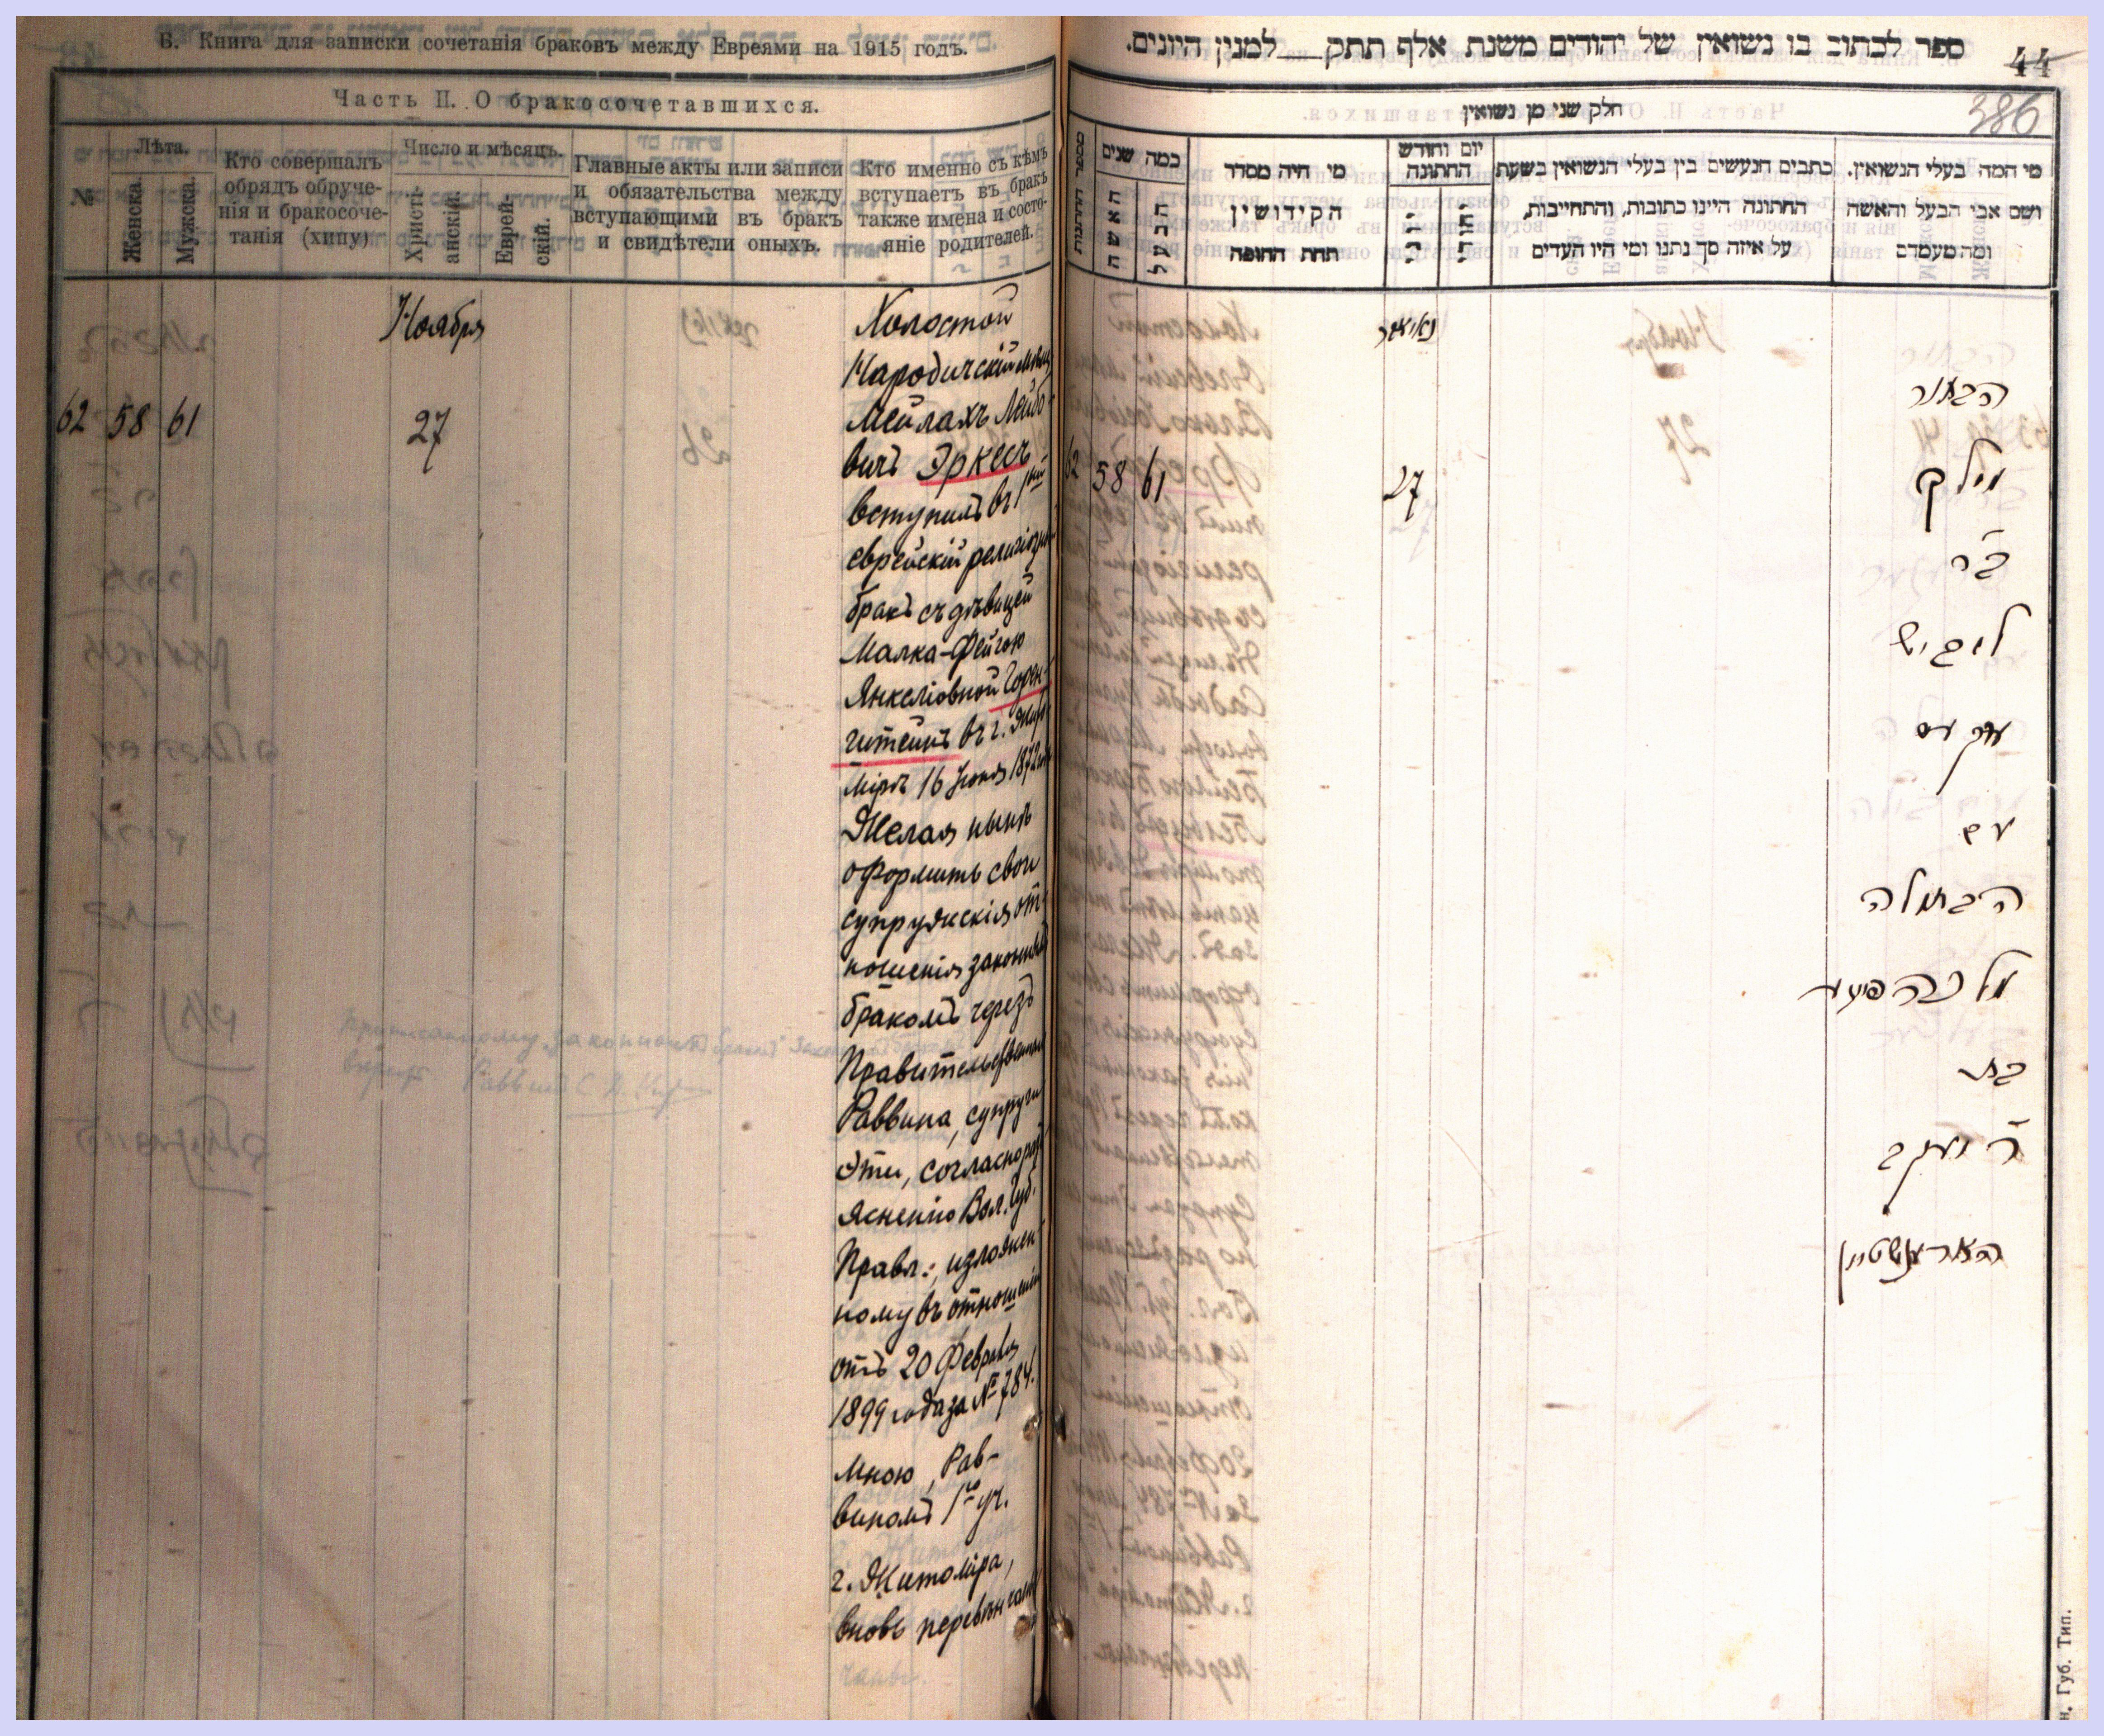 Б. Книга для записки сочетанія браковъ между Евреями на 1915 годъ.
Часть II. О бракосочетавшихся.
№
Лѣта.
Женска.
Мужска.
Кто совершалъ
обрядъ обруче-
нія и бракосоче-
танія (хипу)
Число и мѣсяцъ.
Христі-
анскій.
Еврей-
скій.
Главные акты или записи
и обязательства между
вступающими въ бракъ
и свидѣтели оныхъ.
Кто именно съ кѣмъ
вступаетъ въ бракъ
также имена и состо-
яніе родителей.
Ноября
62 58 61 27
Холостой
Народичскій мѣщ
Мейлахъ Лейбо-
вичъ Эркесъ
вступилъ въ 1й
еврейскій религіозн
бракъ съ дѣвицей
Малка-Фейгою
Янкеліовной Горен-
штейнъ въ г. Жито
мірѣ 16 Іюня 1872
Желая нынѣ
оформить свои
супружскія от-
ношенія законны
бракомъ черезъ
Правительствен
Раввина, супруги
эти, согласно раз
ясненію Вол. Губ.
Правл., изложен-
ному въ отношеніи
отъ 20 Февраля
1899 года за № 784.
Мною, Рав-
виномъ 1го уч.
г. Житоміра,
вновь перевѣнчаны
чаны.
ספר לכתוב בו נשואין של יהודים משנת אלף תתק למנין היונים.
44
386
חלק שני מן נשואין
מי המה בעלי הנשואין.
ושם אבי הבעל והאשה
ומה מעמדם
כתבים הנעשים בין בעלי הנשואין בשעת
החתונה היינו כתובות, והתחייבות,
על איזה סך נתנו ומי היו העדים
יום וחודש
החתונה
מי היה מסדר
הקידושין
תחת החופה
כמה שנים
הבעל
האשה
נאיאבר
62 58 61 27
הבחור
מילך
ב״ר
ליביש
ערקעס
עם
הבתולה
מלכה פייגע
בת
ר׳ יעקב
האראנשטיין
н. Губ. Тип.